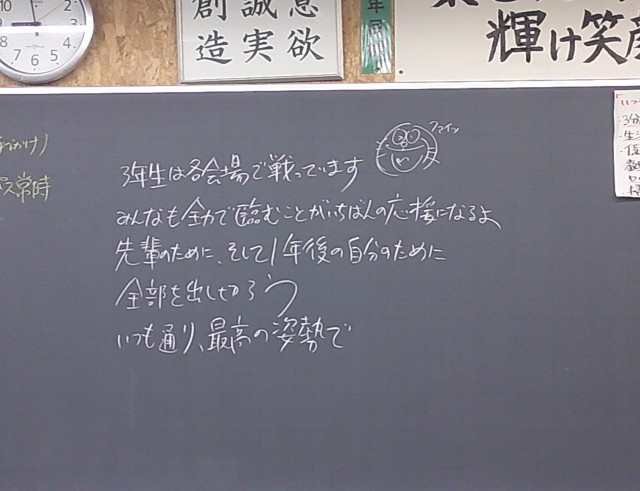 意欲
誠実
創造
年
輝け笑
ファイッ
3年生は各会場で戦っています
みんなも全力で臨むことがいちばんの応援になるよ
先輩のために、そして1年後の自分のために
全部を出しきろう
いつも通り、最高の姿勢で
常時
3分
生
10
9
8
7
6
5
4
3
2